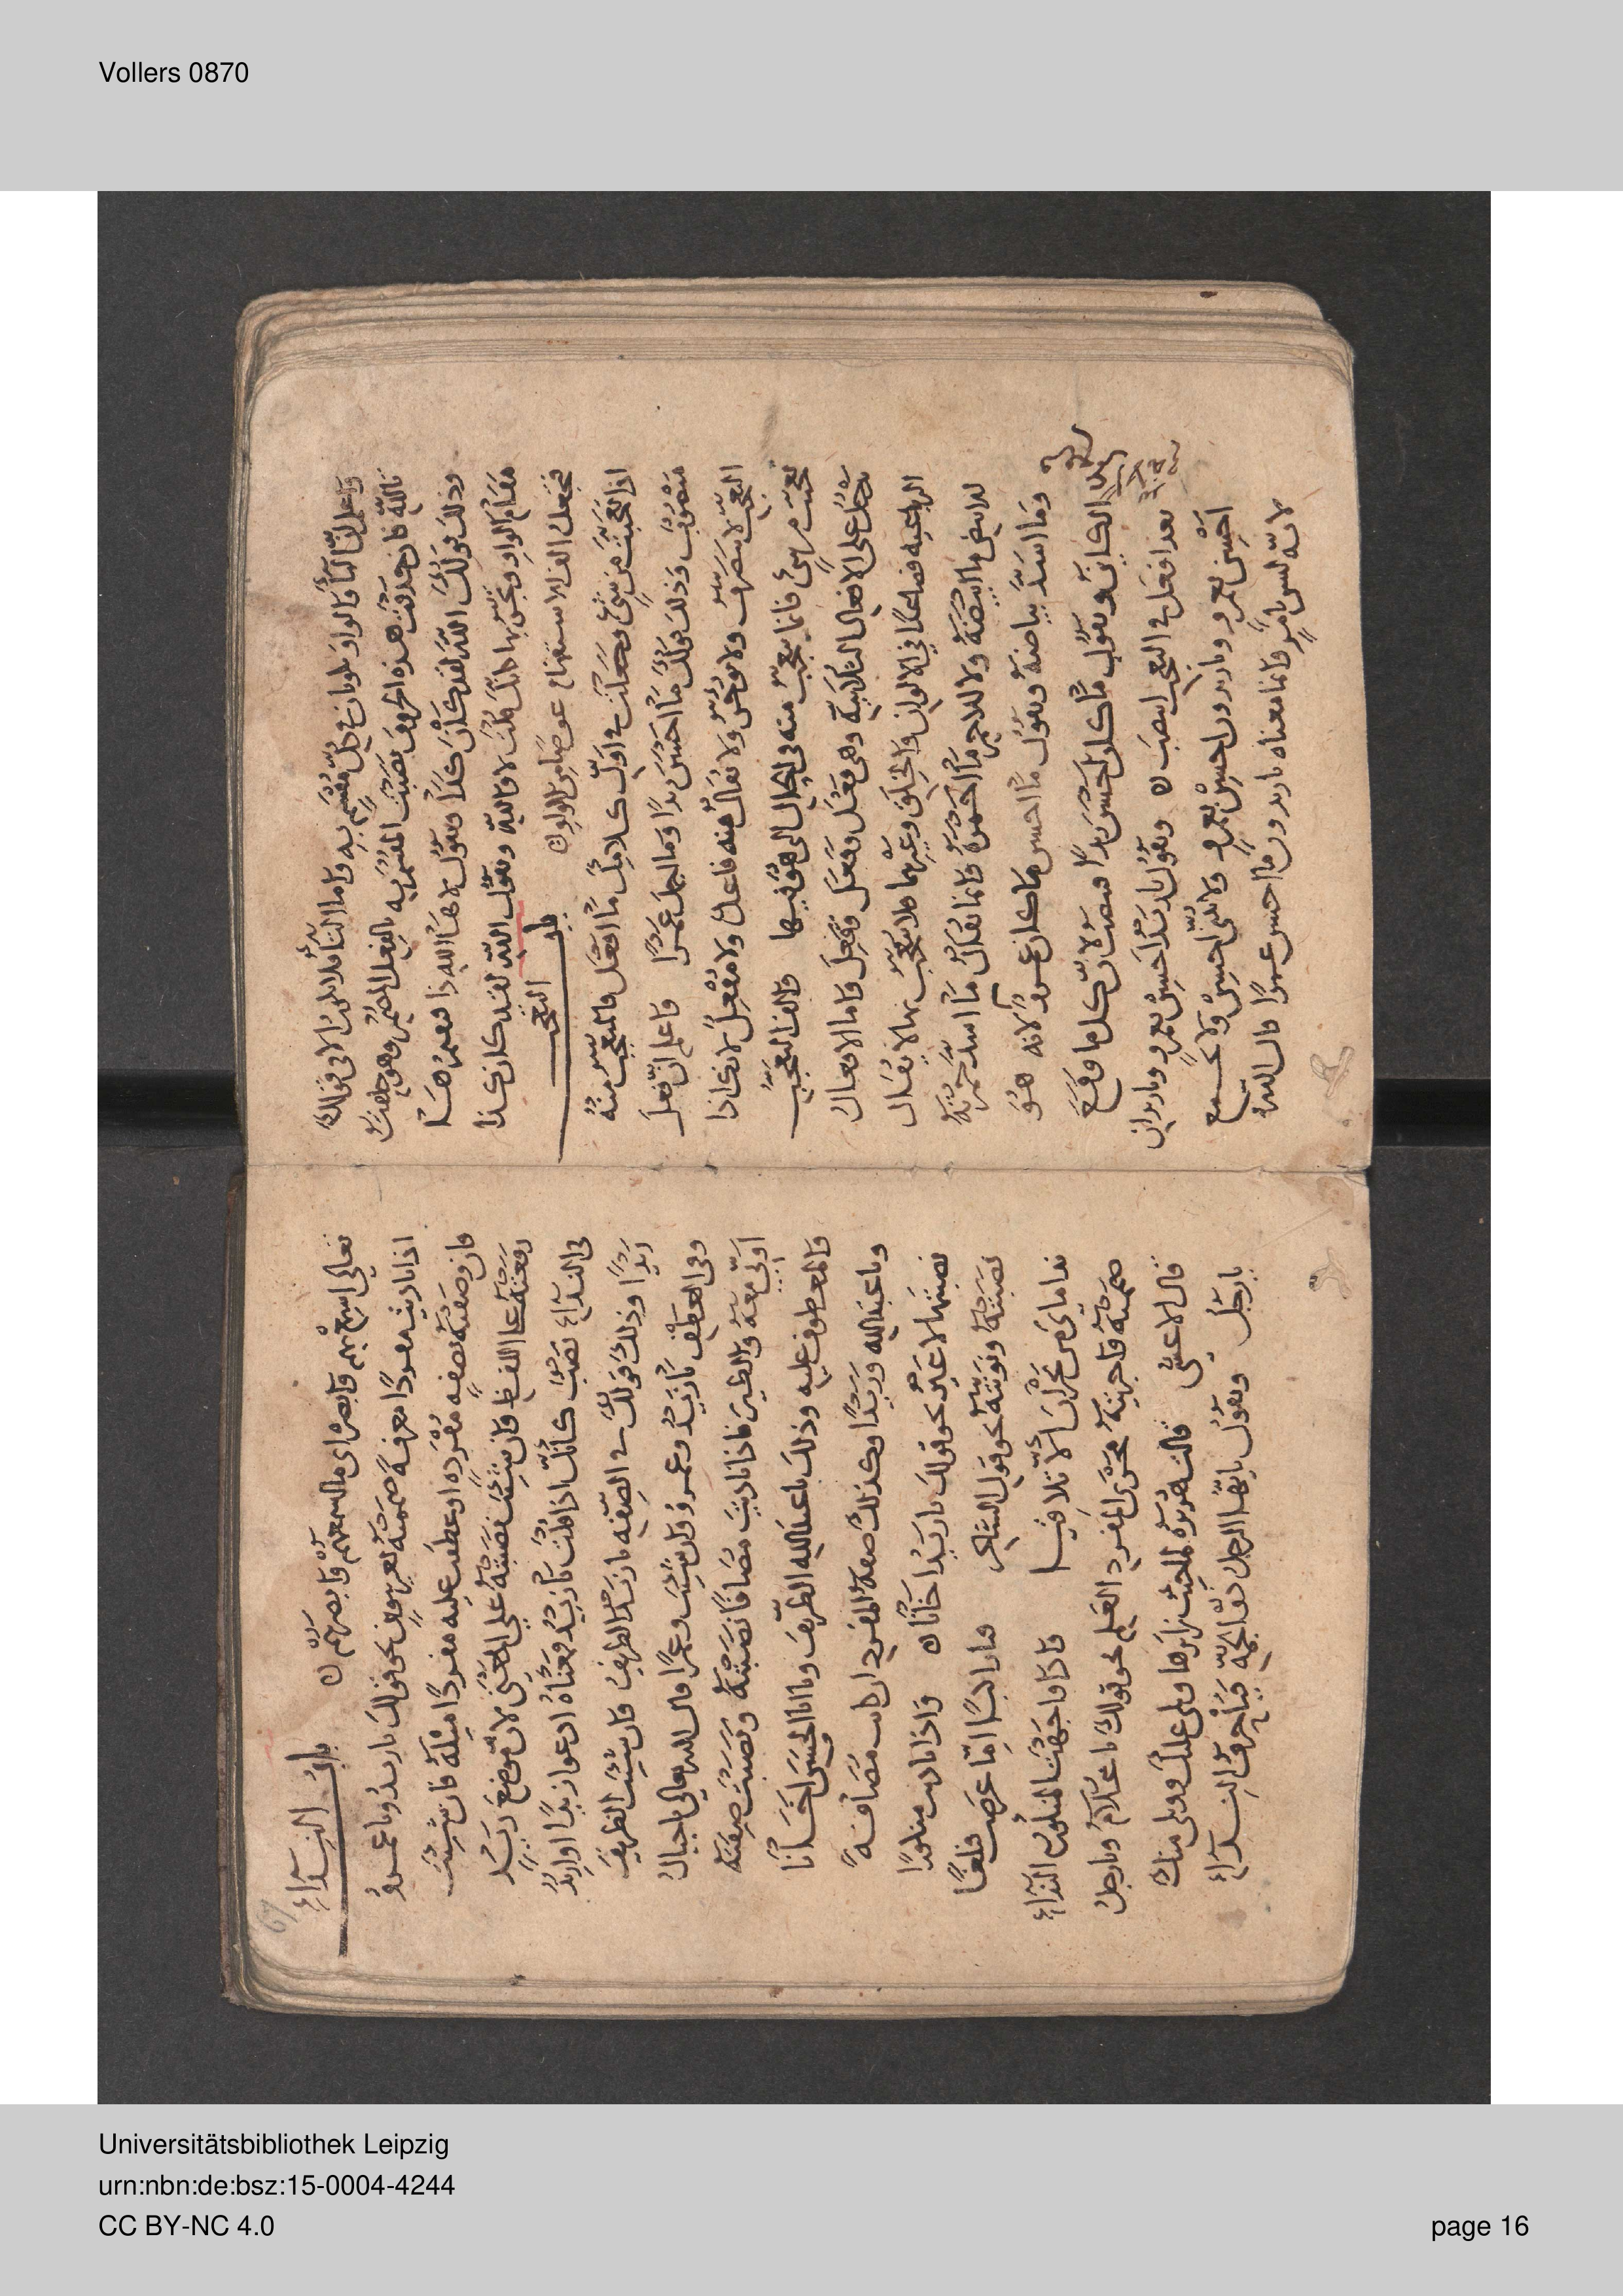 Vollers 0870
واعلم ان التا والواو تدخلان على كل مقسم به واما التا فلا تدخل الا في قولك
تالله فان حذفت هذه الحروف نصبت المقسم به بالفعل المضمر وهو حلفت
وذلك قولك الله لقد كان كذا وتقول لاها الله ذا
مقام الواو لانك قلت لا والله وتقول الله لقد كان كذا
فتجعل الف الاستفهام عوضا من الواو
باب التعجب
اذا تعجبت من شي وجعلت في اول كلامك ما افعل فالمتعجب منه
منصوب وذلك قولك ما احسن زيدا وما اجمل عمرا واعلم ان فعل
التعجب لا يتصرف ولا يوخر ولا يقال منه فاعل ولا مفعل لانك اذا
تعجبت من شي فانما تتعجب منه في الحال التي هو فيها والف التعجب
تدخل على الافعال الثلاثية وهي فعل وفعل وفعل واما الافعال
الرباعية فصاعدا في الالوان والخلق وغيرهما فلا تتعجب بها لا يقال
للابيض ما ابيضه ولا للاحمر ما احمره وانما يقال ما اشد حمرته
وما اشد بياضه وتقول ما احسن ما كان عمرو لانه هو
الكاين وتقول ما كان احسن زيدا فتنصب لان كل ما وقع
بعد افعل في التعجب انتصب وتقول يا زيد احسن بعمرو ويا زيدان
احسن بعمرو ويا زيدون احسن بعمرو
لانه ليس بامر وانما معناه يا زيدون ما احسن عمرا قال الله
تعالى اسمع بهم وابصر اي ما اسمعهم وابصرهم
باب النداء
اذا ناديت مفردا معرفة ضممته بغير تنوين نحو قولك يا زيد ويا عمرو
فان وصفته بصفة مفردة او عطفت عليه مفردا مثله فان شئت
رفعته على اللفظ وان شئت نصبته على المعنى لان موضع زيد
في النداء نصب كانك اذا قلت يا زيد معناه ادعو زيدا او اريد
زيدا وذلك قولك في الصفة يا زيد الظريف وان شئت الظريف
وفي العطف يا زيد وعمرو وان شئت وعمرا قال الله تعالى يا جبال
اوبي معه والطير فاذا ناديت مضافا نصبته ونصبت صفته
والمعطوف عليه وذلك يا عبد الله الظريف ويا ابا الحسن اخانا
ويا عبد الله وزيدا وكذلك صفة المفرد اذا كانت مضافة
نصبتها لا غير نحو قولك يا زيد اخانا واذا ناديت منكورا
نصبته ونونته نحو قول الشاعر فيا راكبا اما عرضت فبلغا
نداماي من نجران الا تلاقيا فاذا واجهت المنكور بالنداء
ضممته واجريته مجرى المفرد العلم نحو قولك يا غلام ويا رجل
قال الاعشى قالت هريرة لما جئت زايرها ويلي عليك وويلي منك
يا رجل وتقول يا ايها الرجل النداء
67
Universitätsbibliothek Leipzig
urn:nbn:de:bsz:15-0004-4244
CC BY-NC 4.0
page 16